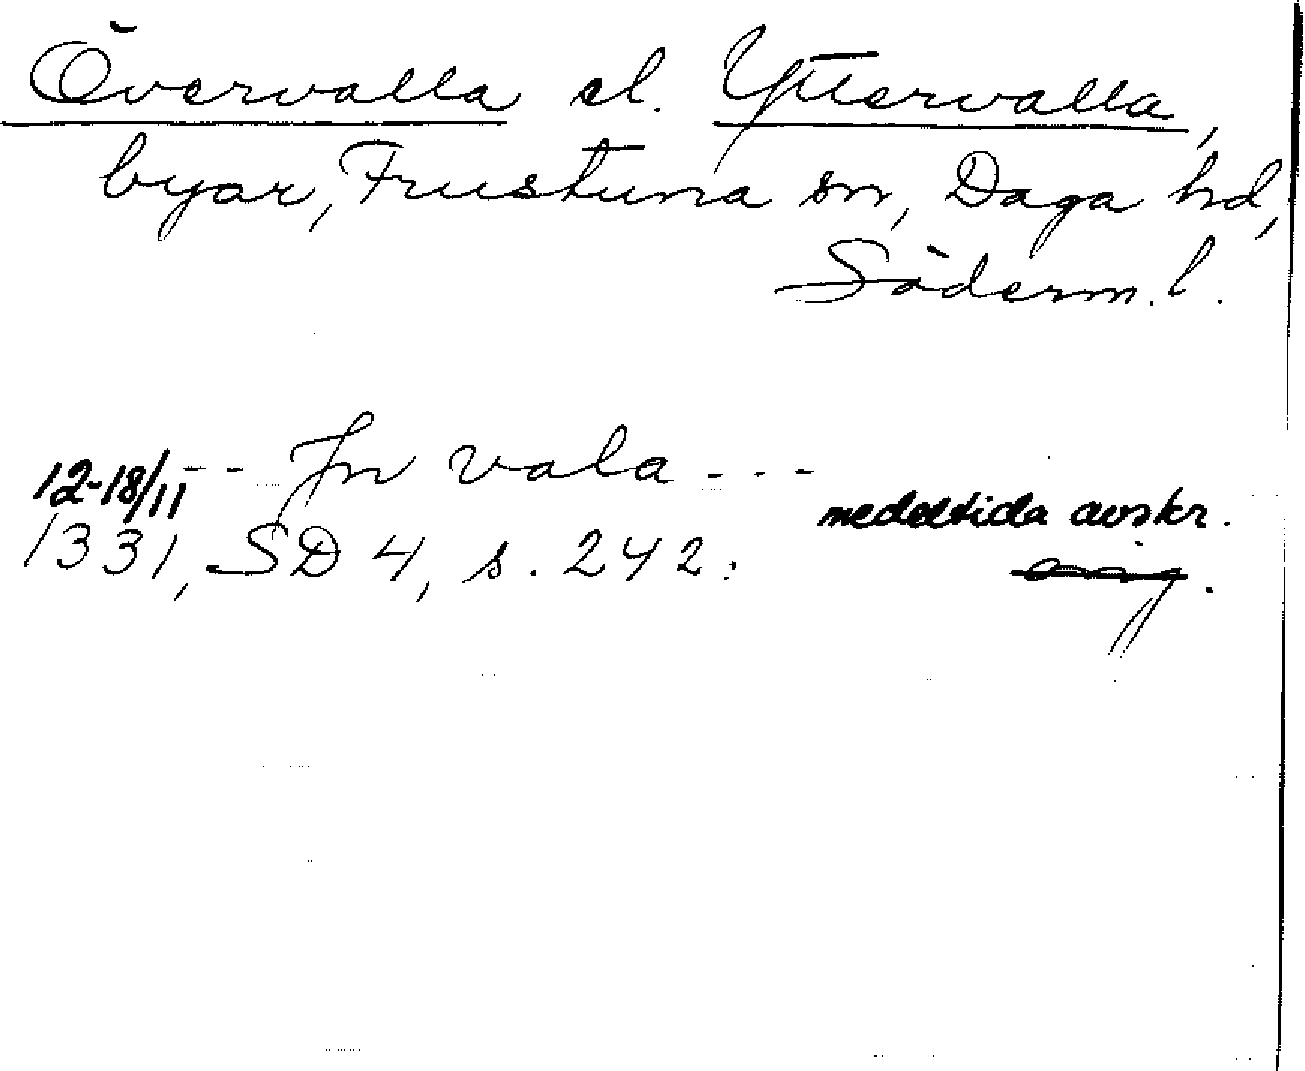 Övervalla el. Yttervalla,
byar, Frustuna sn, Daga hd,
Söderm. l.
- - In vala - - -
12-18/11
medeltida avskr.
1331, SD 4, s. 242.
orig.